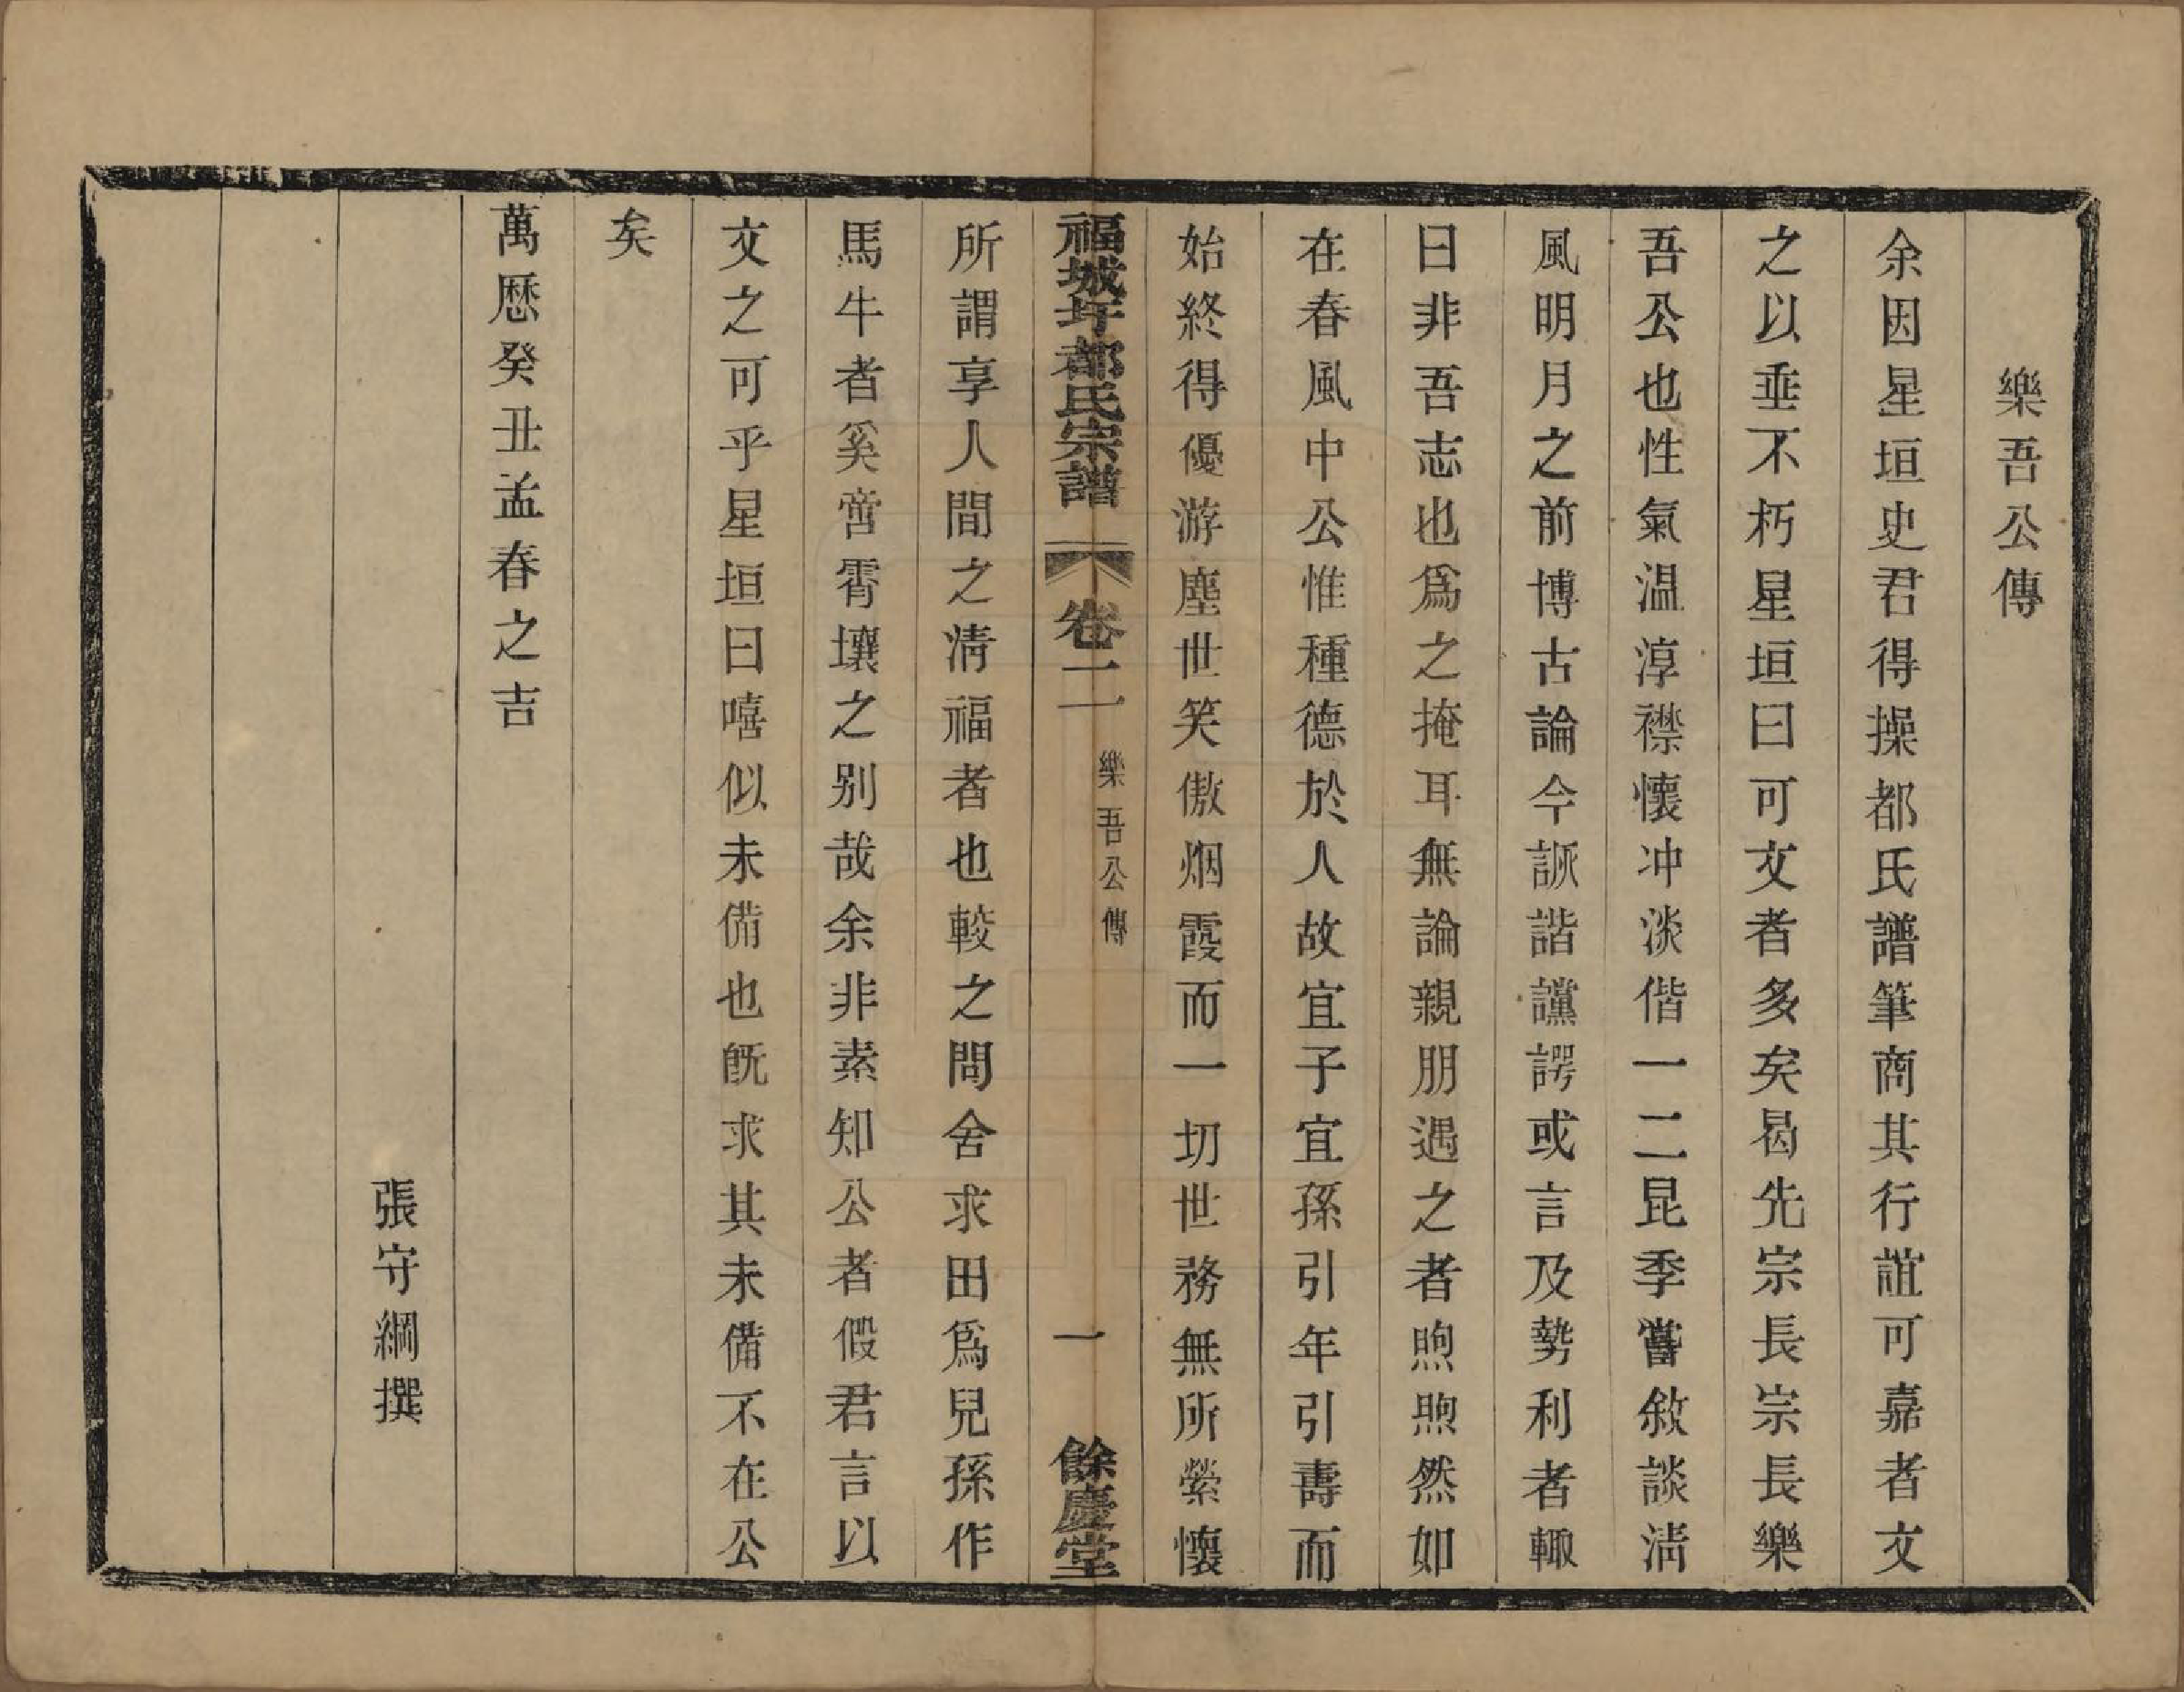 樂吾公傳
余因星垣史君得操都氏譜筆商其行誼可嘉者文
之以垂不朽星垣曰可文者多矣曷先宗長宗長樂
吾公也性氣温淳襟懷冲淡偕一二昆季嘗敘談淸
風明月之前博古論今詼諧讜諤或言及勢利者輙
曰非吾志也爲之掩耳無論親朋遇之者煦煦然如
在春風中公惟種德於人故宜子宜孫引年引壽而
始終得優游塵世笑傲烟霞而一切世務無所縈懷
福城圩都氏宗譜 卷二 樂吾公傳 一 餘慶堂
所謂享人間之淸福者也較之問舍求田爲兒孫作
馬牛者奚啻霄壤之别哉余非素知公者假君言以
文之可乎星垣曰嘻似未備也旣求其未備不在公
矣
萬厯癸丑孟春之吉
張守綱撰